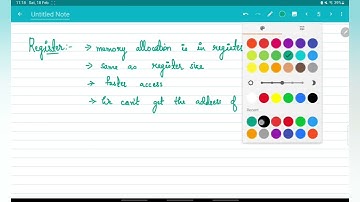 11:18 Sat, 18 Feb
39%
Untitled Note
5
Register:- → memory allocation is in registe
→ same as register size
→ faster access
→ We can't get the address of
Recent